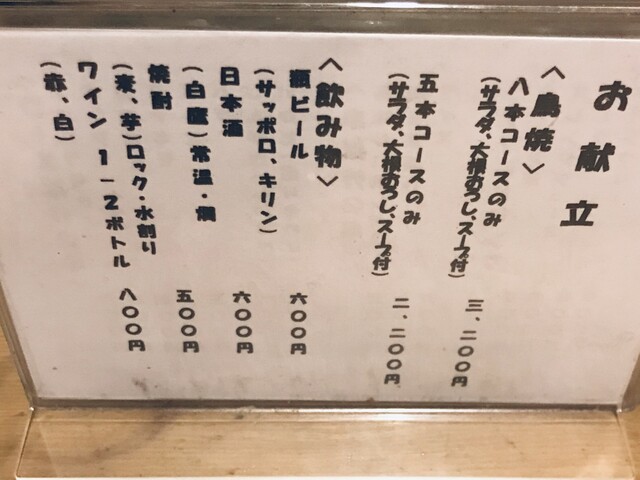 お献立
〈鳥焼〉
八本コースのみ 三、二〇〇円
(サラダ、大根おろし、スープ付)
五本コースのみ 二、二〇〇円
(サラダ、大根おろし、スープ付)
〈飲み物〉
瓶ビール 六〇〇円
(サッポロ、キリン)
日本酒 六〇〇円
(白鷹)常温・燗
焼酎 五〇〇円
(麦、芋)ロック・水割り
ワイン 1-2ボトル 八〇〇円
(赤、白)